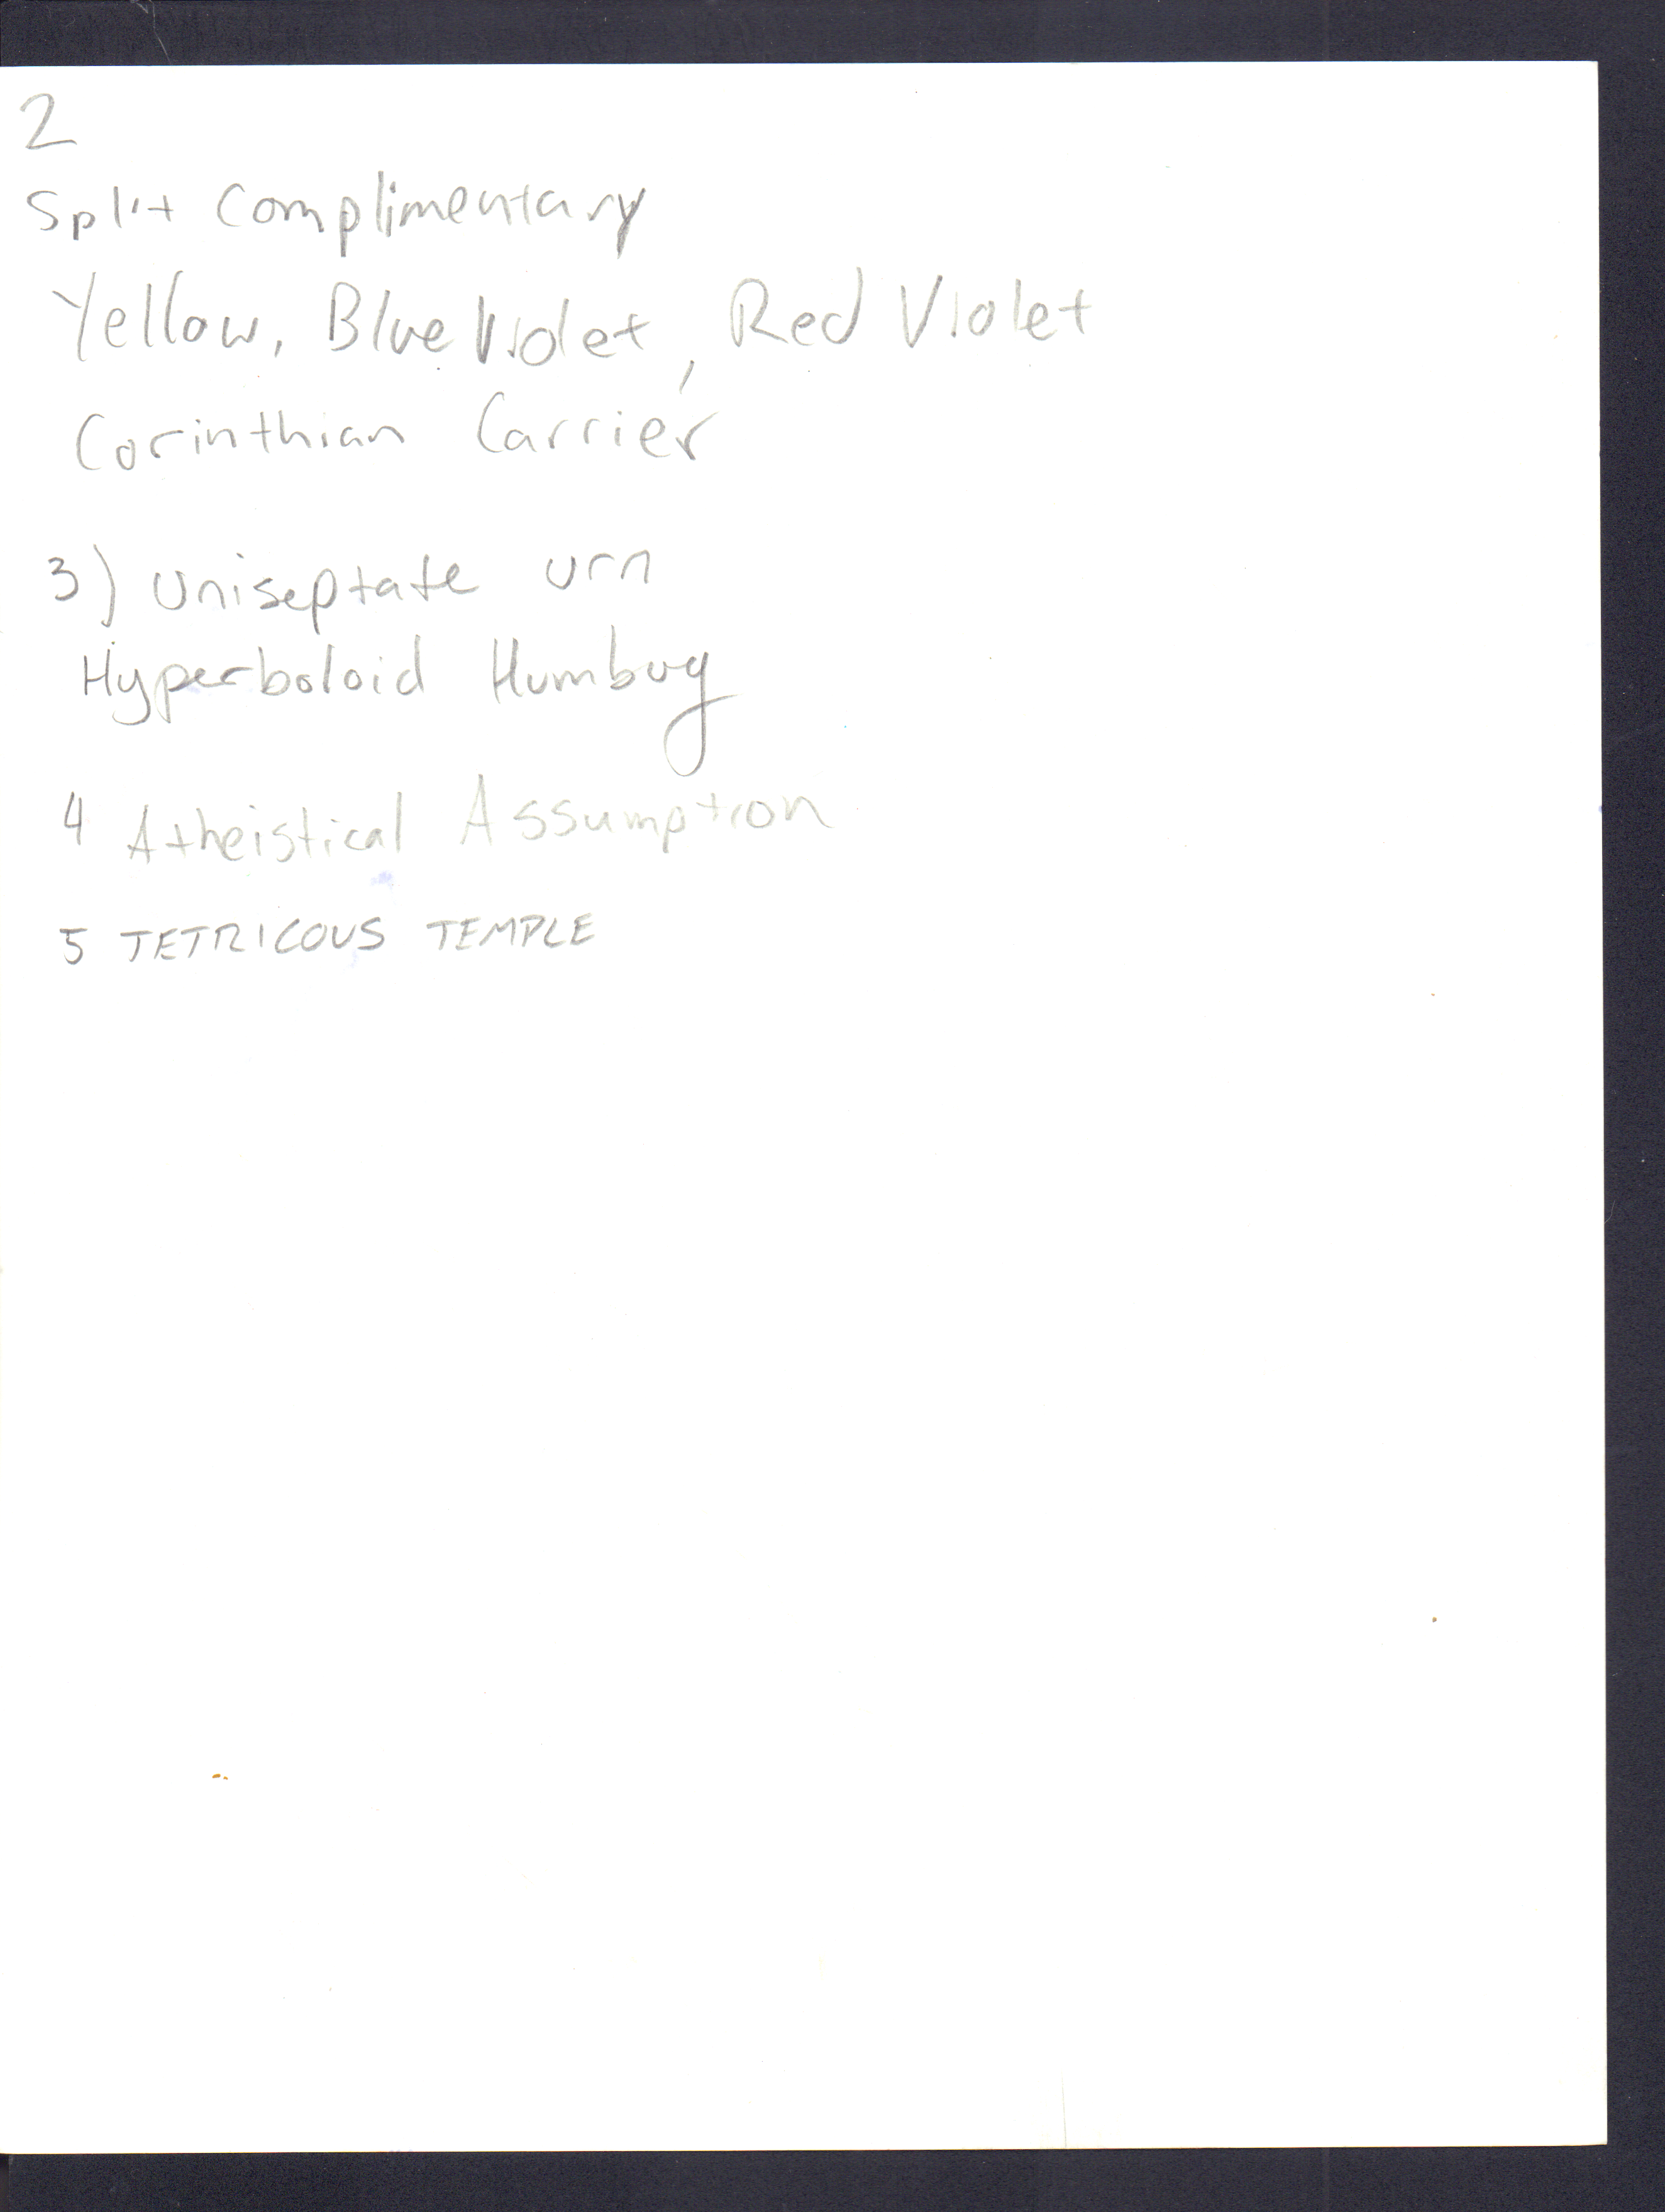 2
Split Complimentary
Yellow, Blue Violet, Red Violet
Corinthian Carrier
3) Uniseptate urn
Hyperboloid Humbug
4 Atheistical Assumption
5 TETRICOUS TEMPLE